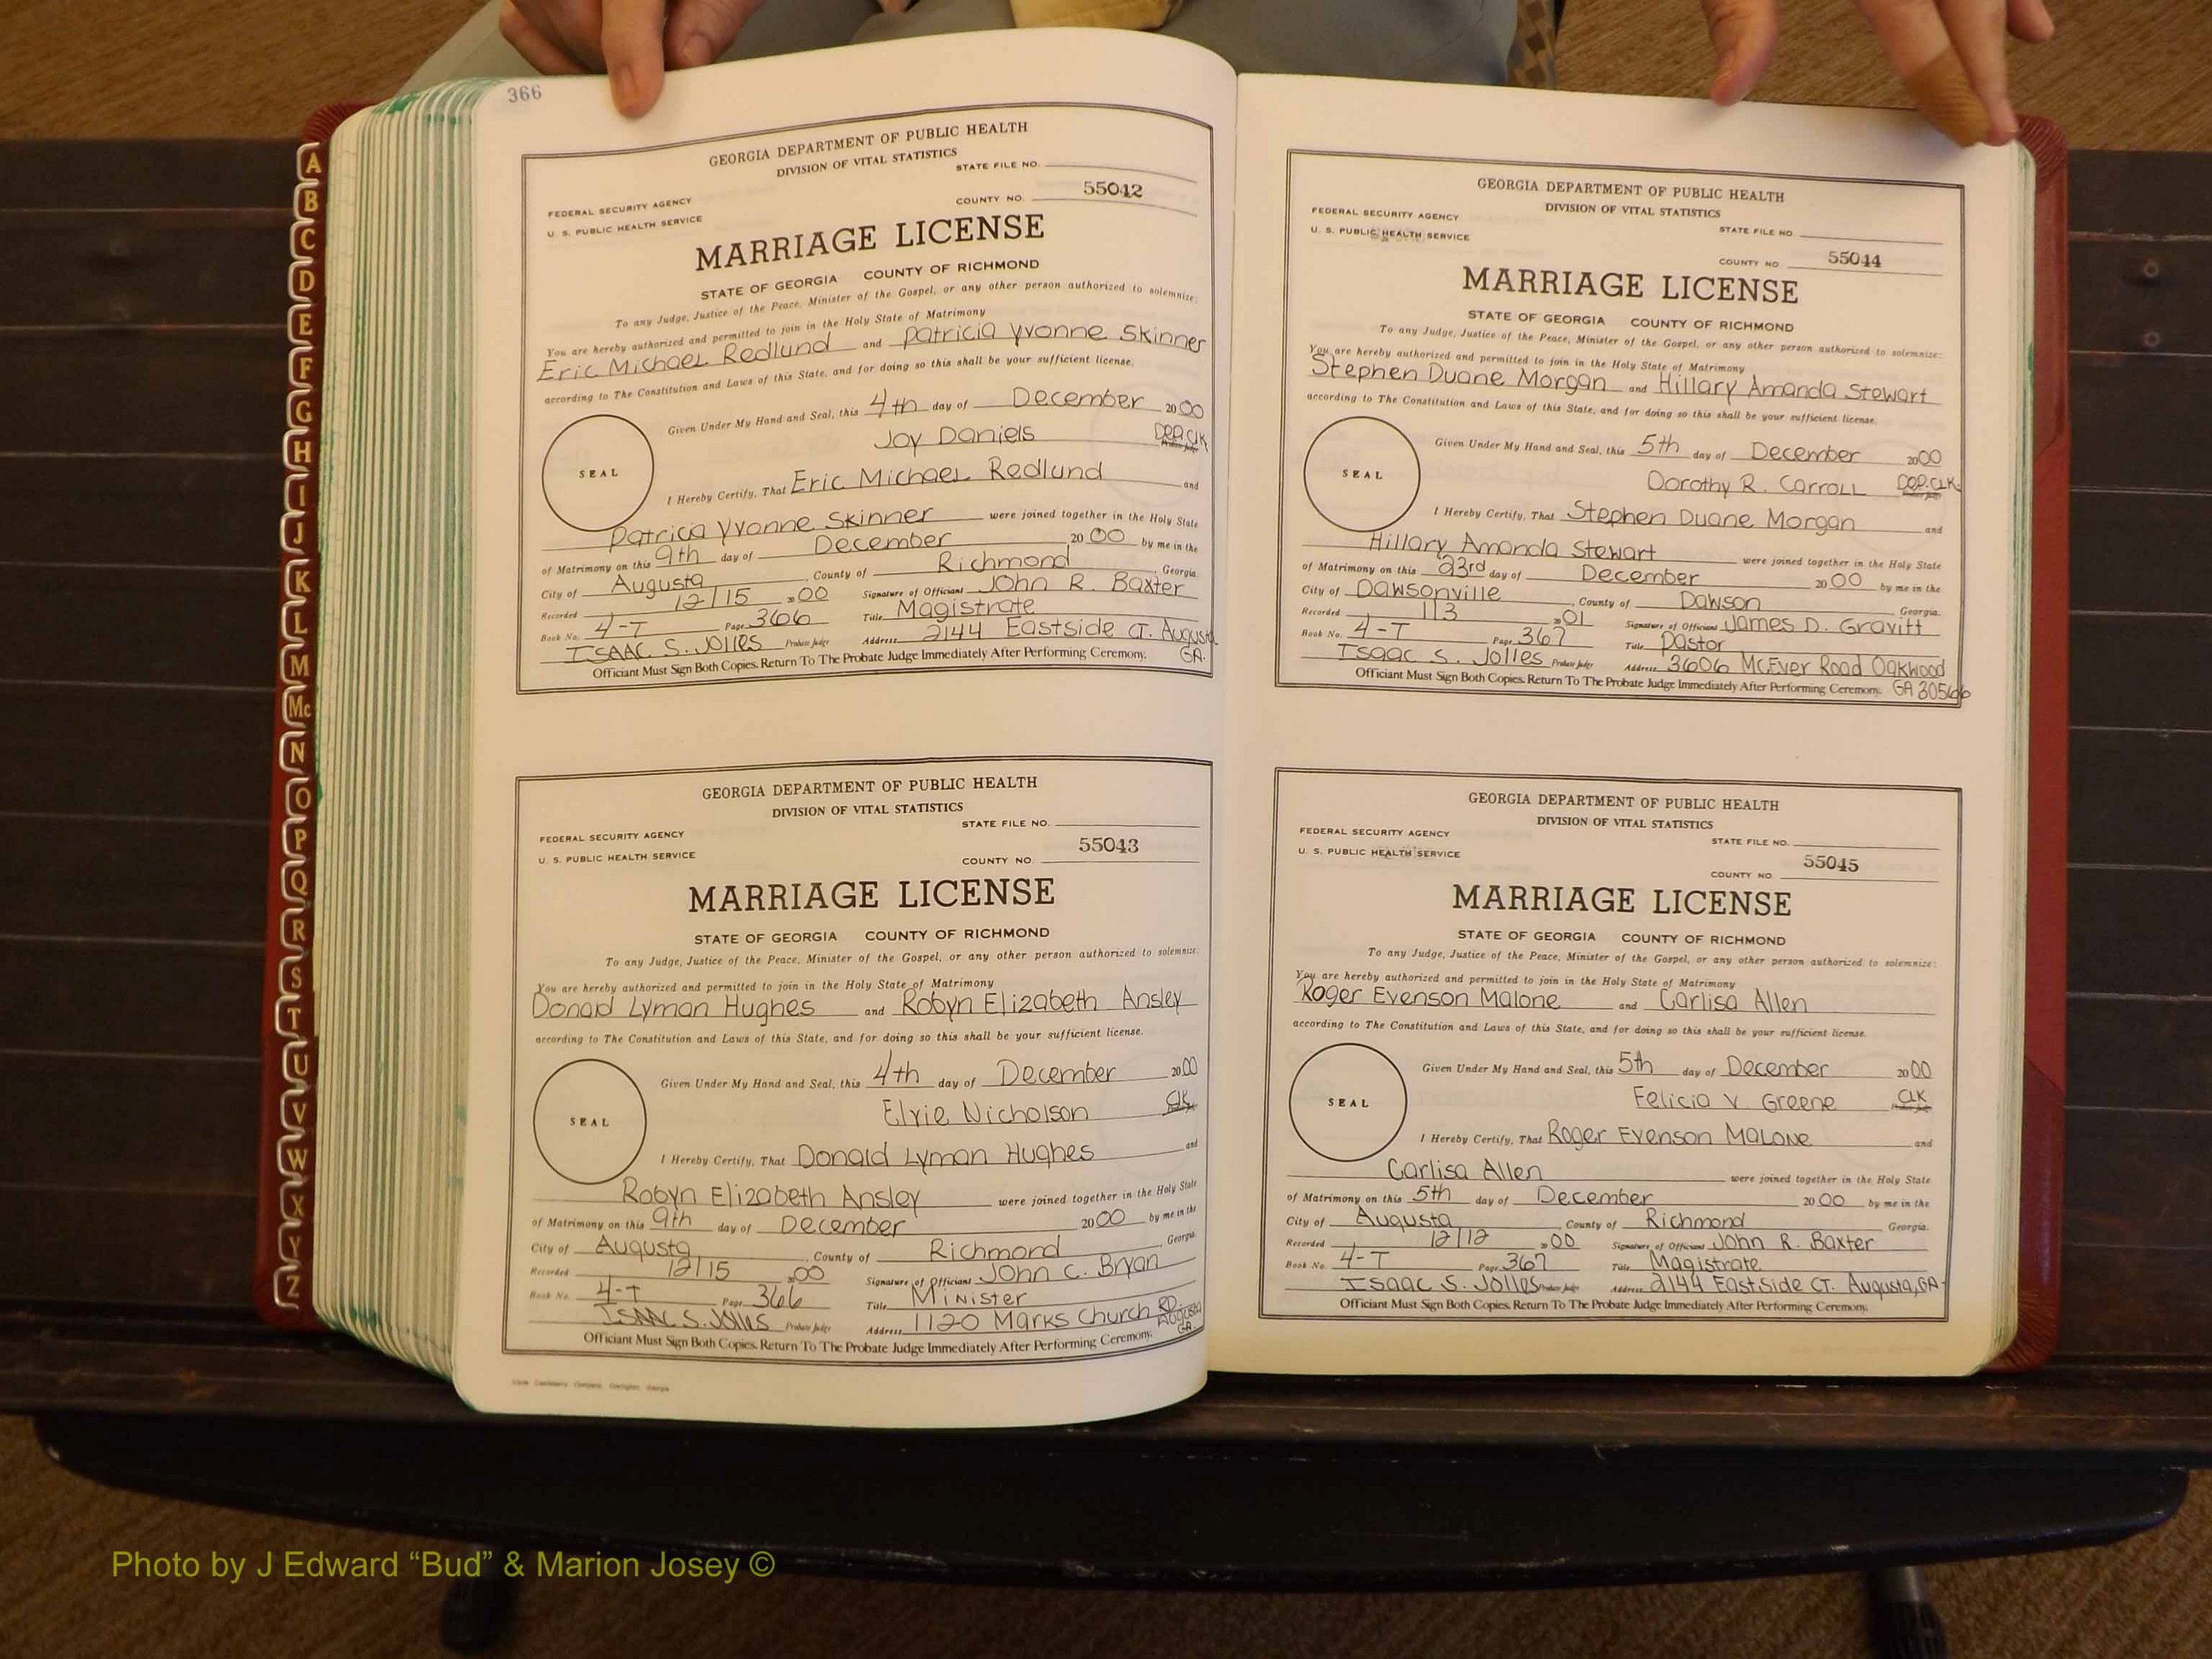 366
A
B
C
D
E
F
G
H
I
J
K
L
M
Mc
N
O
P
Q
R
S
T
U
V
W
X
Y
Z
GEORGIA DEPARTMENT OF PUBLIC HEALTH
DIVISION OF VITAL STATISTICS
STATE FILE NO.
FEDERAL SECURITY AGENCY
COUNTY NO. 55042
U. S. PUBLIC HEALTH SERVICE
MARRIAGE LICENSE
STATE OF GEORGIA COUNTY OF RICHMOND
To any Judge, Justice of the Peace, Minister of the Gospel, or any other person authorized to solemnize:
You are hereby authorized and permitted to join in the Holy State of Matrimony
Eric Michael Redlund and Patricia Yvonne Skinner
according to The Constitution and Laws of this State, and for doing so this shall be your sufficient license.
Given Under My Hand and Seal, this 4th day of December 2000
Joy Daniels DEP. CLK
SEAL
I Hereby Certify, That Eric Michael Redlund and
Patrica Yvonne Skinner were joined together in the Holy State
of Matrimony on this 9th day of December 2000 by me in the
City of Augusta, County of Richmond, Georgia.
Recorded 12/15 2000 Signature of Officiant John R. Baxter
Book No. 4-T Page 366 Title Magistrate
ISAAC S. JOlles Probate Judge Address 2144 Eastside CT. Augusta
GA.
Officiant Must Sign Both Copies. Return To The Probate Judge Immediately After Performing Ceremony.
GEORGIA DEPARTMENT OF PUBLIC HEALTH
DIVISION OF VITAL STATISTICS
STATE FILE NO.
FEDERAL SECURITY AGENCY
COUNTY NO. 55043
U. S. PUBLIC HEALTH SERVICE
MARRIAGE LICENSE
STATE OF GEORGIA COUNTY OF RICHMOND
To any Judge, Justice of the Peace, Minister of the Gospel, or any other person authorized to solemnize:
You are hereby authorized and permitted to join in the Holy State of Matrimony
Donald Lyman Hughes and Robyn Elizabeth Ansley
according to The Constitution and Laws of this State, and for doing so this shall be your sufficient license.
Given Under My Hand and Seal, this 4th day of December 2000
Elvie Nicholson CLK
SEAL
I Hereby Certify, That Donald Lyman Hughes and
Robyn Elizabeth Ansley were joined together in the Holy State
of Matrimony on this 9th day of December 2000 by me in the
City of Augusta, County of Richmond, Georgia.
Recorded 12/15 2000 Signature of Officiant John C. Bryan
Book No. 4-T Page 366 Title Minister
ISAAC S. JOlles Probate Judge Address 1120 Marks Church RD. Augusta
GA.
Officiant Must Sign Both Copies. Return To The Probate Judge Immediately After Performing Ceremony.
GEORGIA DEPARTMENT OF PUBLIC HEALTH
DIVISION OF VITAL STATISTICS
FEDERAL SECURITY AGENCY
STATE FILE NO.
U. S. PUBLIC HEALTH SERVICE
COUNTY NO. 55044
MARRIAGE LICENSE
STATE OF GEORGIA COUNTY OF RICHMOND
To any Judge, Justice of the Peace, Minister of the Gospel, or any other person authorized to solemnize:
You are hereby authorized and permitted to join in the Holy State of Matrimony
Stephen Duane Morgan and Hillary Amanda Stewart
according to The Constitution and Laws of this State, and for doing so this shall be your sufficient license.
Given Under My Hand and Seal, this 5th day of December 2000
Dorothy R. Carroll DEP. CLK.
SEAL
I Hereby Certify, That Stephen Duane Morgan and
Hillary Amanda Stewart were joined together in the Holy State
of Matrimony on this 23rd day of December 2000 by me in the
City of Dawsonville, County of Dawson, Georgia.
Recorded 1/3 2001 Signature of Officiant James D. Gravitt
Book No. 4-T Page 367 Title Pastor
Isaac S. Jolles Probate Judge Address 3606 McEver Road Oakwood
Officiant Must Sign Both Copies. Return To The Probate Judge Immediately After Performing Ceremony. GA 30566
GEORGIA DEPARTMENT OF PUBLIC HEALTH
DIVISION OF VITAL STATISTICS
FEDERAL SECURITY AGENCY
STATE FILE NO.
U. S. PUBLIC HEALTH SERVICE
COUNTY NO. 55045
MARRIAGE LICENSE
STATE OF GEORGIA COUNTY OF RICHMOND
To any Judge, Justice of the Peace, Minister of the Gospel, or any other person authorized to solemnize:
You are hereby authorized and permitted to join in the Holy State of Matrimony
Roger Evenson Malone and Carlisa Allen
according to The Constitution and Laws of this State, and for doing so this shall be your sufficient license.
Given Under My Hand and Seal, this 5th day of December 2000
Felicia V. Greene CLK
SEAL
I Hereby Certify, That Roger Evenson Malone and
Carlisa Allen were joined together in the Holy State
of Matrimony on this 5th day of December 2000 by me in the
City of Augusta, County of Richmond, Georgia.
Recorded 12/12 2000 Signature of Officiant John R. Baxter
Book No. 4-T Page 367 Title Magistrate
Isaac S. Jolles Probate Judge Address 2144 Eastside CT. Augusta, GA
Officiant Must Sign Both Copies. Return To The Probate Judge Immediately After Performing Ceremony.
Photo by J Edward “Bud” & Marion Josey ©